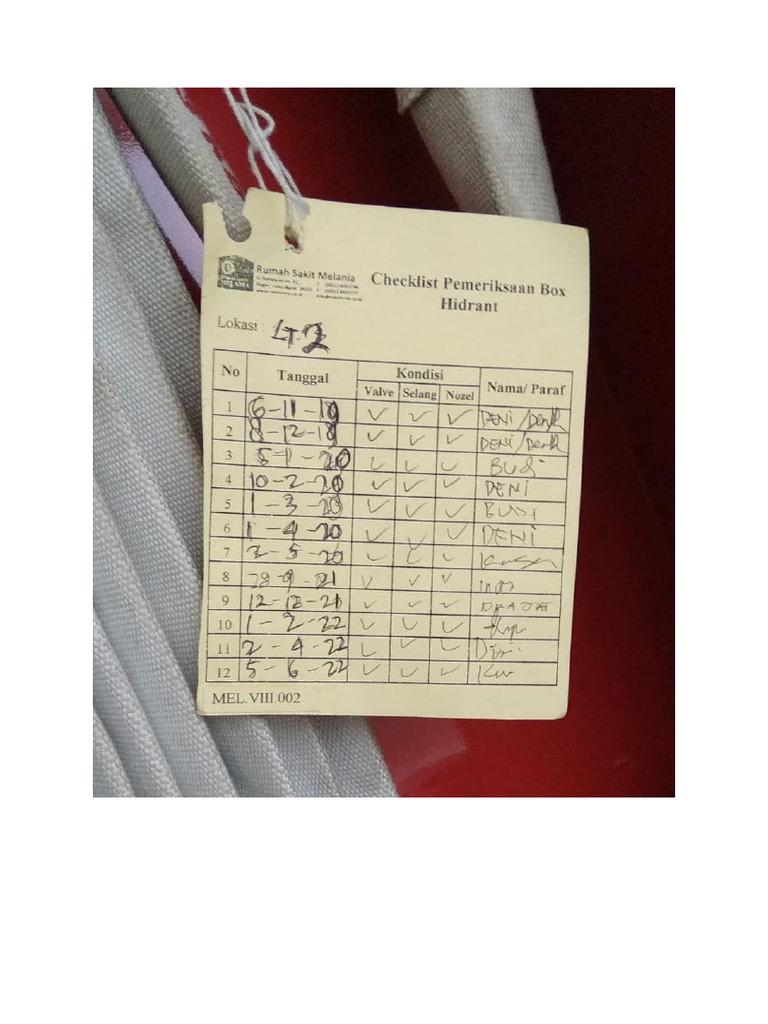 Rumah Sakit Melania
Checklist Pemeriksaan Box
Hidrant
Lokasi : LT.2
No Tanggal Kondisi Nama/ Paraf
Valve Selang Nozel
1 6-11-19 ✓ ✓ ✓ DENI /
2 8-12-19 ✓ ✓ ✓ DENI /
3 5-1-20 ✓ ✓ ✓ BUDI
4 10-2-20 ✓ ✓ ✓ DENI
5 1-3-20 ✓ ✓ ✓ BUDI
6 1-4-20 ✓ ✓ ✓ DENI
7 2-5-20 ✓ ✓ ✓
8 28-9-21 ✓ ✓ ✓
9 12-12-21 ✓ ✓ ✓ DRAJAT
10 1-2-22 ✓ ✓ ✓
11 2-4-22 ✓ ✓ ✓
12 5-6-22 ✓ ✓ ✓
MEL.VIII.002